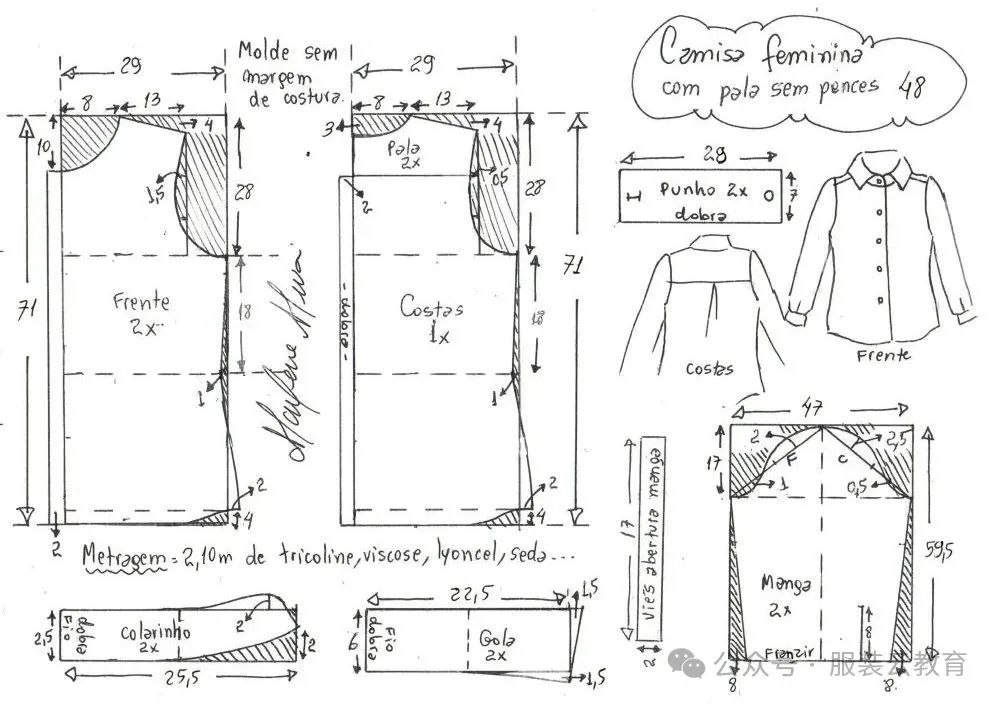 Molde sem
margem
de costura.
29
8
13
4
10
1,5
28
71
Frente
2x
18
1
2
4
2
Marlene Mukai
29
8
13
4
3
Pala
2x
0,5
2
28
71
-dobra-
Costas
1x
18
1
2
4
Camisa feminina
com pala sem pences 48
29
Punho 2x
dobra
7
Costas
Frente
47
2
2,5
17
F
C
1
0,5
59,5
Manga
2x
8
Franzir
8
8
17
viés abertura manga
2
Metragem = 2,10m de tricoline, viscose, lyoncel, seda...
2,5
dobra
Fio
Colarinho
2x
2
2
25,5
22,5
1,5
6
dobra
Fio
Gola
2x
1,5
公众号 · 服装云教育